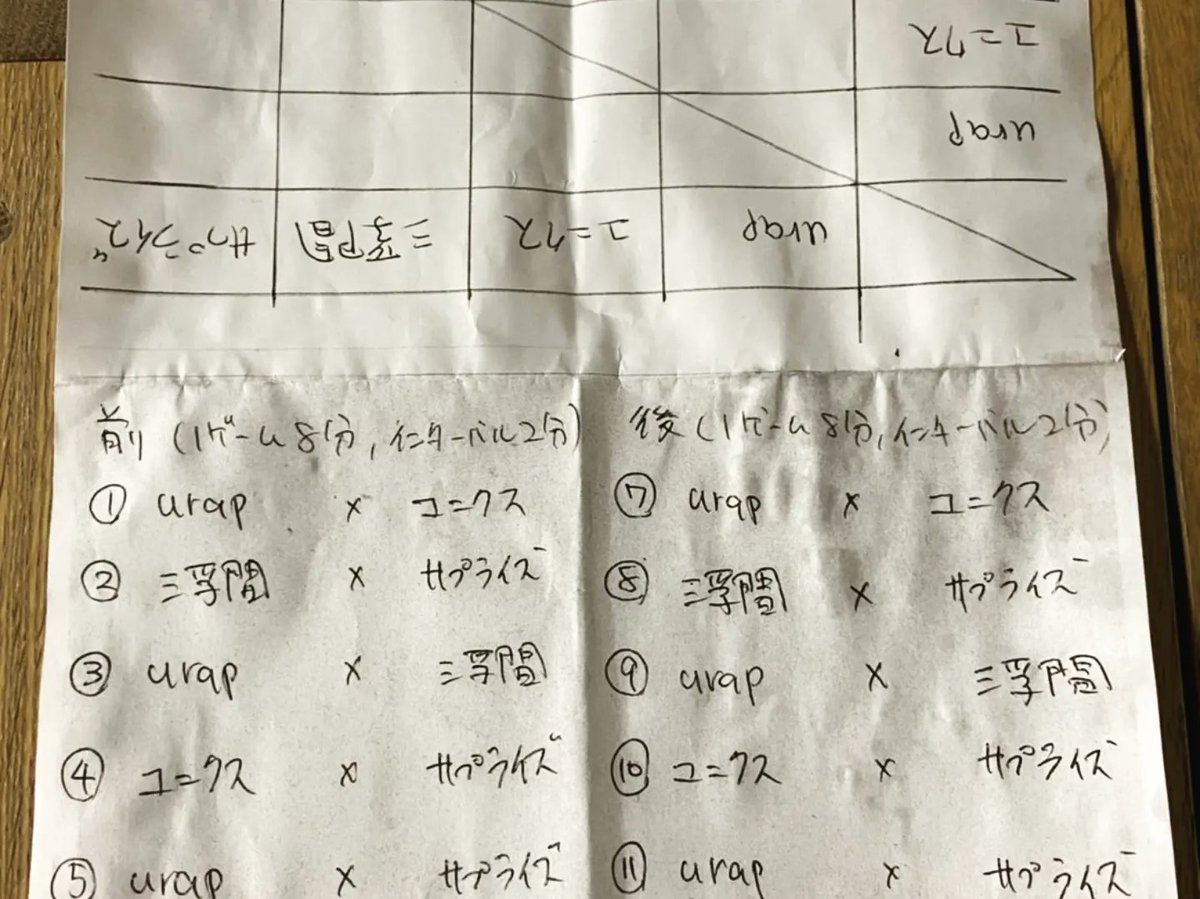 ユニクス
urap
サプライズ 三浮間 ユニクス urap
前 (1ゲーム8分, インターバル2分)
① urap × ユニクス
② 三浮間 × サプライズ
③ urap × 三浮間
④ ユニクス × サプライズ
⑤ urap × サプライズ
後 (1ゲーム8分, インターバル2分)
⑦ urap × ユニクス
⑧ 三浮間 × サプライズ
⑨ urap × 三浮間
⑩ ユニクス × サプライズ
⑪ urap × サプライズ